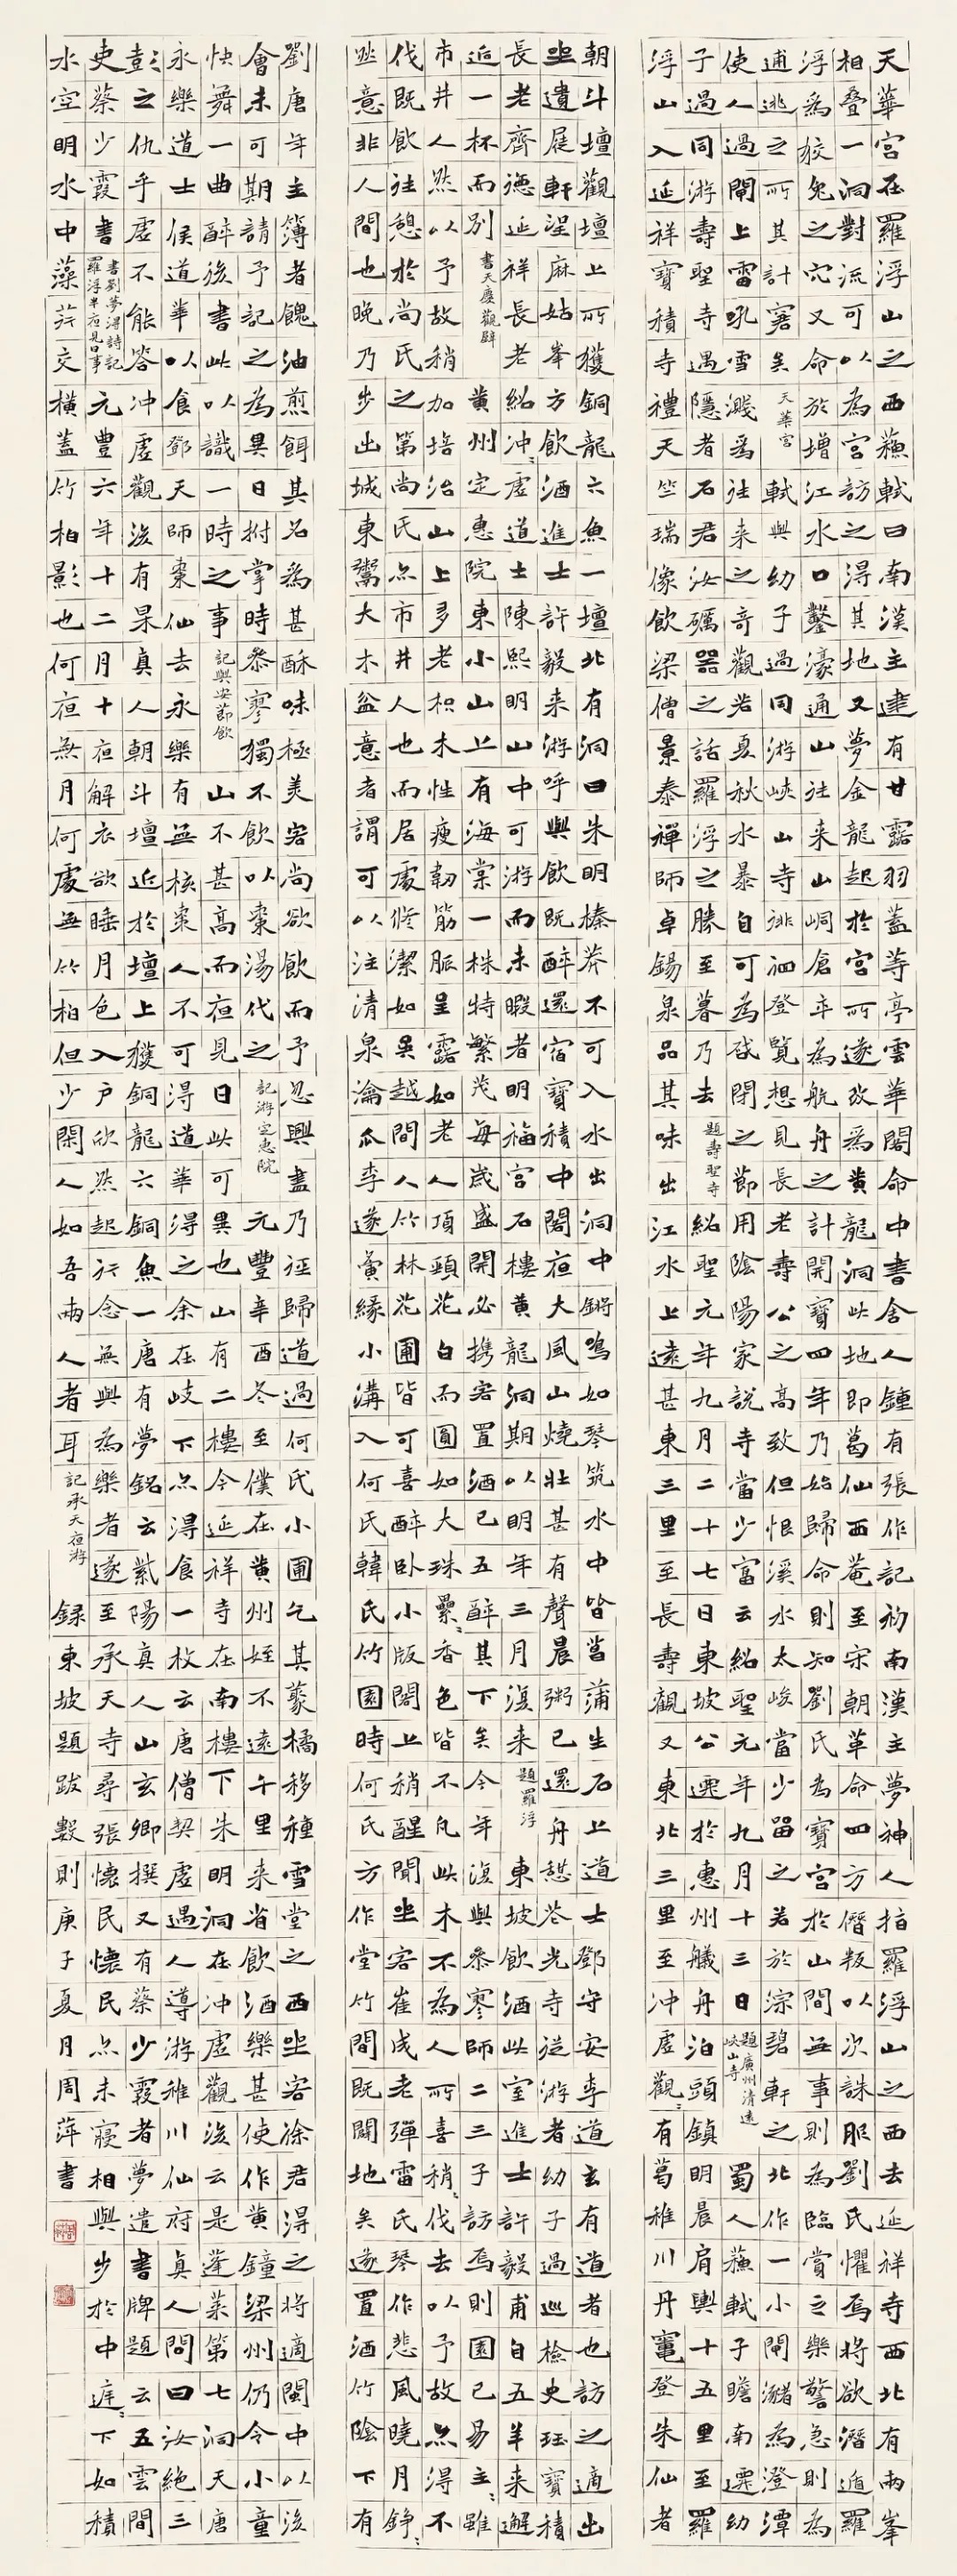 天華宮在羅浮山之西蘇軾曰南漢主建有甘露羽蓋等亭雲華閣命中書舍人鍾有張作記初南漢主夢神人指羅浮山之西去延祥寺西北有兩峯
相疊一洞對流可以為宮訪之得其地又夢金龍起於宮所遂改為黃龍洞此地即葛仙西菴至宋朝革命四方僭叛以次誅服劉氏懼焉將欲潛遁羅
浮為狡兔之穴又命於增江水口鑿濠通山往來山峒倉卒為航舟之計開寶四年乃始歸命則知劉氏為寶宮於山間無事則為臨賞之樂警急則為
逋逃之所其計窘矣 天華宮 軾與幼子過同游峽山寺徘徊登覽想見長老壽公之高致但恨溪水太峻當少留之若於淙碧軒之北作一小閘瀦為澄潭
使人過閘上雷吼雪濺為往來之奇觀若夏秋水暴自可為啟閉之節用陰陽家說寺當少富云紹聖元年九月十三日 題廣州清遠峽山寺 蜀人蘇軾子瞻南遷幼
子過同游壽聖寺遇隱者石君汝礪器之話羅浮之勝至暮乃去 題壽聖寺 紹聖元年九月二十七日東坡公遷於惠州艤舟泊頭鎮明晨肩輿十五里至羅
浮山入延祥寶積寺禮天竺瑞像飲梁僧景泰禪師卓錫泉品其味出江水上遠甚東三里至長壽觀又東北三里至冲虛觀有葛稚川丹竈登朱仙者
朝斗壇觀壇上所獲銅龍六魚一壇北有洞曰朱明榛莽不可入水出洞中鏘鳴如琴筑水中皆菖蒲生石上道士鄧守安李道玄有道者也訪之適出
坐遺屐軒望麻姑峯方飲酒進士許毅來游呼與飲既醉還宿寶積中閣夜大風山燒壯甚有聲晨粥已還舟憩花光寺從游者幼子過巡檢史珏寶積
長老齊德延祥長老紹冲冲虛道士陳熙明山中可游而未暇者明福宮石樓黃龍洞期以明年三月復來 題羅浮 東坡飲酒此室進士許毅甫自五羊來邂
逅一杯而別 書天慶觀壁 黃州定惠院東小山上有海棠一株特繁茂每歲盛開必攜客置酒已五醉其下矣今年復與參寥師二三子訪焉則園已易主主雖
市井人然以予故稍加培治山上多老枳木性瘦韌筋脈呈露如老人頂頸花白而圓如大珠纍纍香色皆不凡此木不為人所喜稍稍伐去以予故亦得不
伐既飲往憩於尚氏之第尚氏亦市井人也而居處修潔如吳越間人竹林花圃皆可喜醉卧小版閣上稍醒聞坐客崔成老彈雷氏琴作悲風曉月錚錚
然意非人間也晚乃步出城東鬻大木盆意者謂可以注清泉瀹瓜李遂夤緣小溝入何氏韓氏竹園時何氏方作堂竹間既闢地矣遂置酒竹陰下有
劉唐年主簿者餽油煎餌其名為甚酥味極美客尚欲飲而予忽興盡乃徑歸道過何氏小圃乞其藂橘移種雪堂之西坐客徐君得之將適閩中以後
會未可期請予記之為異日拊掌時參寥獨不飲以棗湯代之 記游定惠院 元豐辛酉冬至僕在黃州姪不遠千里來省飲酒樂甚使作黃鐘梁州仍令小童
快舞一曲醉後書此以識一時之事 記與安節飲 山不甚高而夜見日此可異也山有二樓今延祥寺在南樓下朱明洞在冲虛觀後云是蓬萊第七洞天唐
永樂道士侯道華以食鄧天師棗仙去永樂有無核棗人不可得道華得之余在岐下亦得食一枚云唐僧契虛遇人導游稚川仙府真人問曰汝絕三
彭之仇乎虛不能答冲虛觀後有杲真人朝斗壇近於壇上獲銅龍六銅魚一唐有夢銘云紫陽真人山玄卿撰又有蔡少霞者夢遣書牌題云五雲閣
吏蔡少霞書 書劉夢得詩記羅浮半夜見日事 元豐六年十二月十夜解衣欲睡月色入戶欣然起行念無與為樂者遂至承天寺尋張懷民懷民亦未寢相與步於中庭庭下如積
水空明水中藻荇交橫蓋竹柏影也何夜無月何處無竹柏但少閑人如吾兩人者耳 記承天夜游 錄東坡題跋數則庚子夏月周萍書